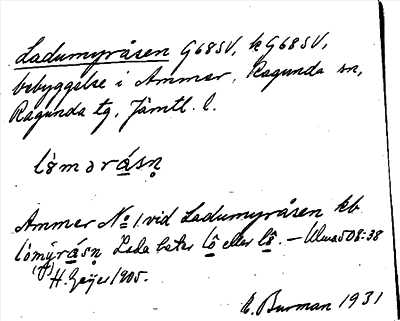 Ladumyråsen G68SV, k G68SV,
bebyggelse i Ammer, Ragunda sn,
Ragunda tg, Jämtl. l.
Ammer No 1 vid Ladumyråsen kb
Lada heter eller – Ulma 508:38
H. Geijer 1905.
E. Burman 1931